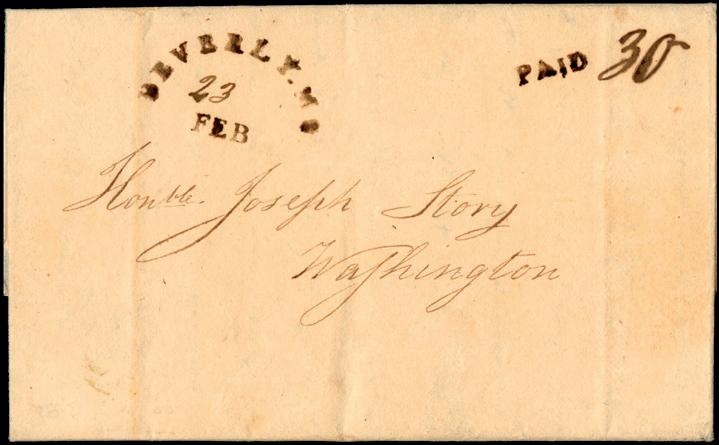 BEVERLY. MS
23
FEB
PAID 30
Honble. Joseph Story
Washington